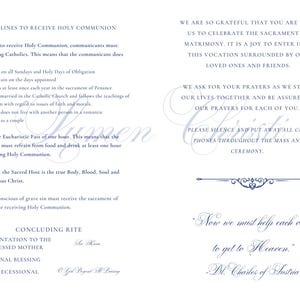 LINES TO RECEIVE HOLY COMMUNION
to receive Holy Communion, communicants must
ng Catholics. This means that the communicant does
on all Sundays and Holy Days of Obligation
ain on the days appointed
at least once each year in the sacrament of Penance
married in the Catholic Church and follows the teachings of
with regard to issues of faith and morals.
does not live with another person in a romantic
to a couple
Eucharistic Fast of one hour. This means that the
must refrain from food and drink at least one hour
ing Holy Communion.
the Sacred Host is the true Body, Blood, Soul and
us Christ.
nscious of grave sin must receive the sacrament of
e receiving Holy Communion.
CONCLUDING RITE
NTATION TO THE
ESSED MOTHER
NAL BLESSING
ECESSIONAL
O God Beyond All Praising
WE ARE SO GRATEFUL THAT YOU ARE
US TO CELEBRATE THE SACRAMENT
MATRIMONY. IT IS A JOY TO ENTER I
THIS VOCATION SURROUNDED BY O
LOVED ONES AND FRIENDS.
WE ASK FOR YOUR PRAYERS AS WE S
OUR LIVES TOGETHER AND BE ASSURE
OUR PRAYERS FOR EACH OF YOU.
PLEASE SILENCE AND PUT AWAY ALL C
PHONES THROUGHOUT THE MASS AN
CEREMONY.
"Now we must help each o
to get to Heaven."
-Bl. Charles of Austria